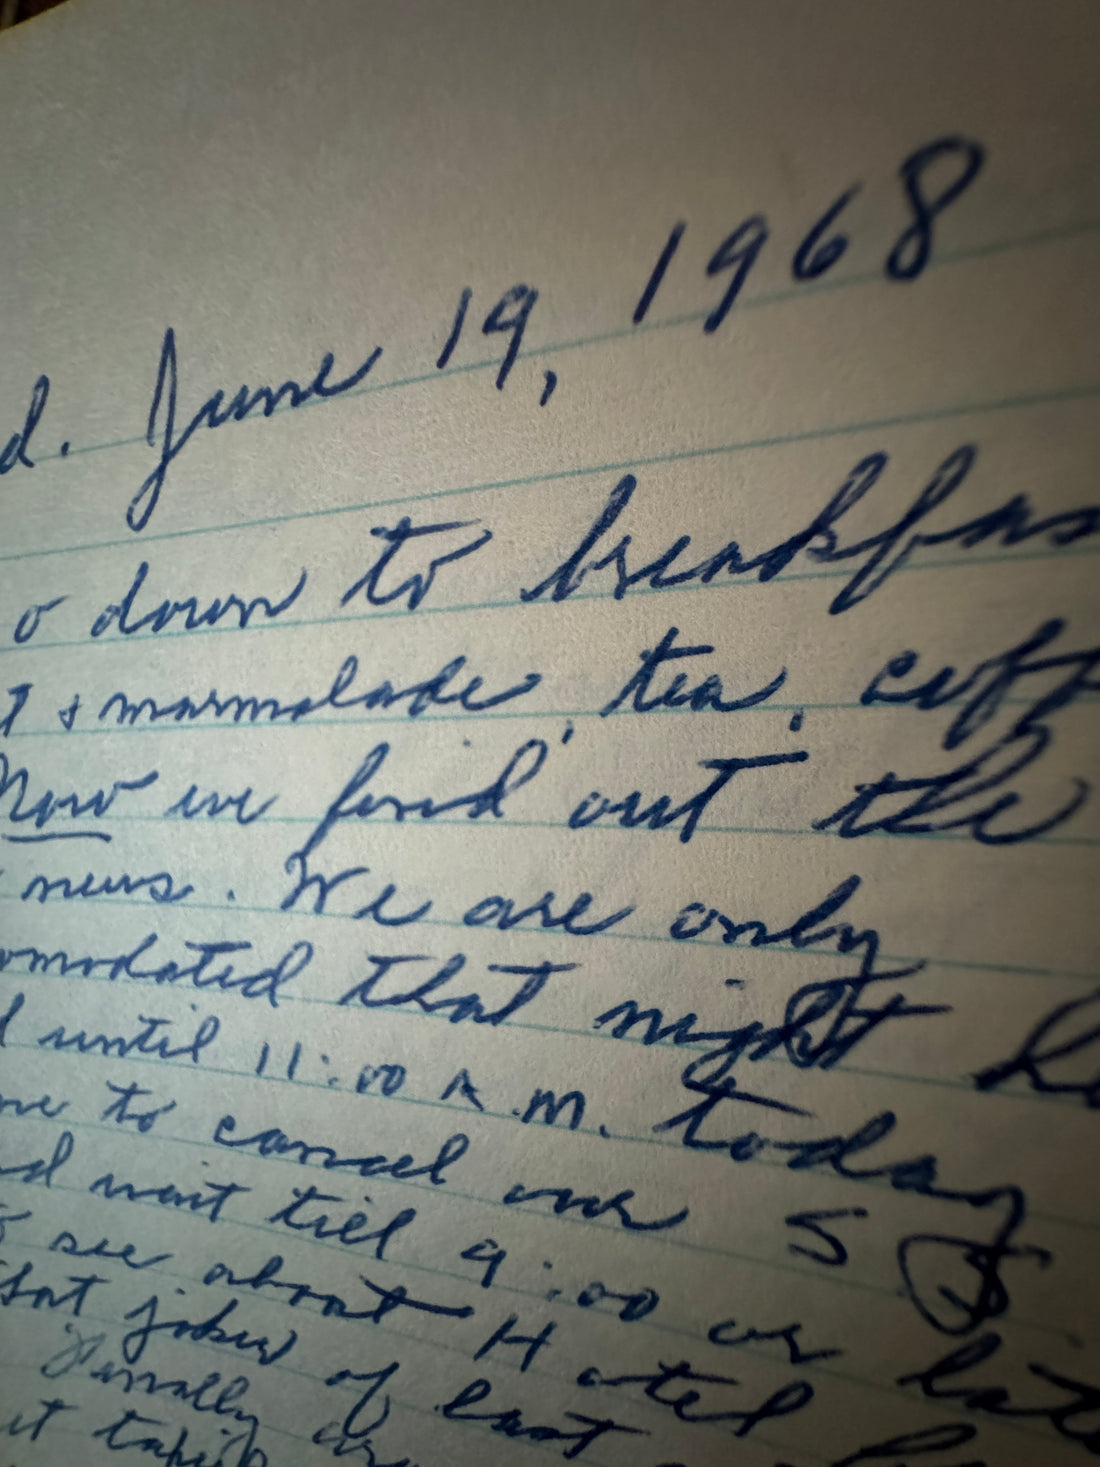 d. June 19, 1968
o down to breakfas
t & marmalade, tea, coff
Now we find out the
news. We are only
omodated that night
until 11:00 A.M. today
to cancel our 5
wait till 9:00 or late
see about Hotel
that joker of last
finally
it